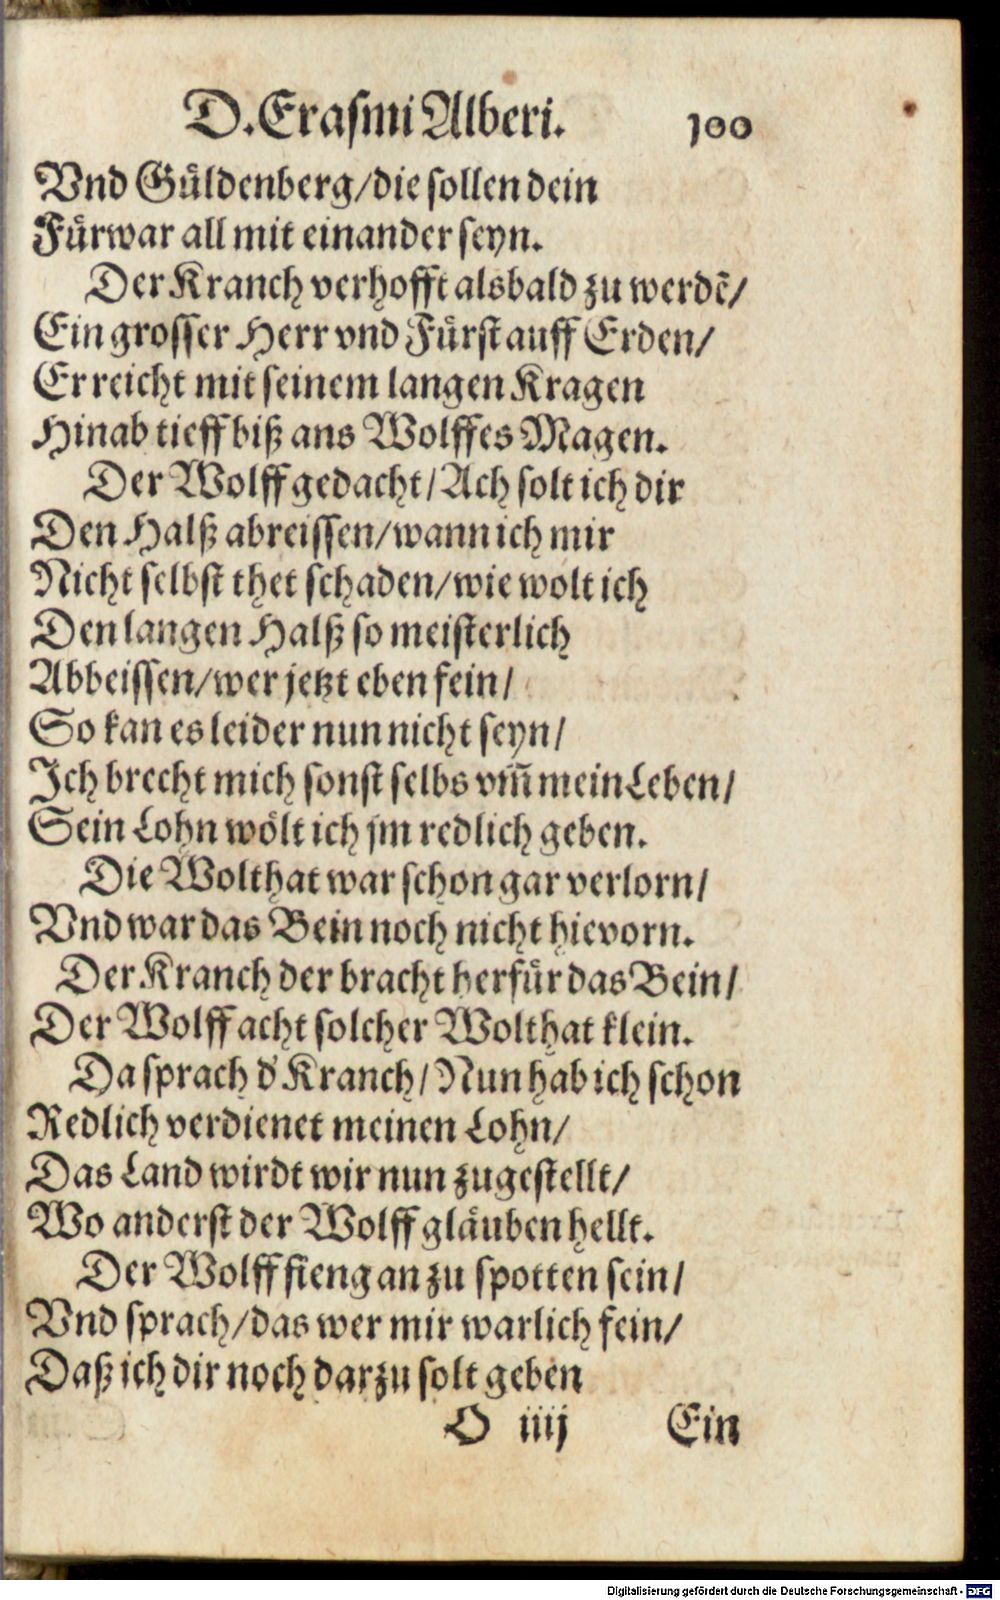 D. Erasmi Alberi. 100
Vnd Gůldenberg/ die sollen dein
Fůrwar all mit einander seyn.
Der Kranch verhofft alsbald zu werdẽ/
Ein grosser Herr vnd Fůrst auff Erden/
Er reicht mit seinem langen Kragen
Hinab tieff biß ans Wolffes Magen.
Der Wolff gedacht/ Ach solt ich dir
Den Halß abreissen/ wann ich mir
Nicht selbst thet schaden/ wie wolt ich
Den langen Halß so meisterlich
Abbeissen/ wer jetzt eben fein/
So kan es leider nun nicht seyn/
Ich brecht mich sonst selbs vm̃ mein Leben/
Sein Lohn wölt ich jm redlich geben.
Die Wolthat war schon gar verlorn/
Vnd war das Bein noch nicht hievorn.
Der Kranch der bracht herfůr das Bein/
Der Wolff acht solcher Wolthat klein.
Da sprach d' Kranch/ Nun hab ich schon
Redlich verdienet meinen Lohn/
Das Land wirdt wir nun zugestellt/
Wo anderst der Wolff gläuben hellt.
Der Wolff fieng an zu spotten sein/
Vnd sprach/ das wer mir warlich fein/
Daß ich dir noch darzu solt geben
O iiij Ein
Digitalisierung gefördert durch die Deutsche Forschungsgemeinschaft - DFG